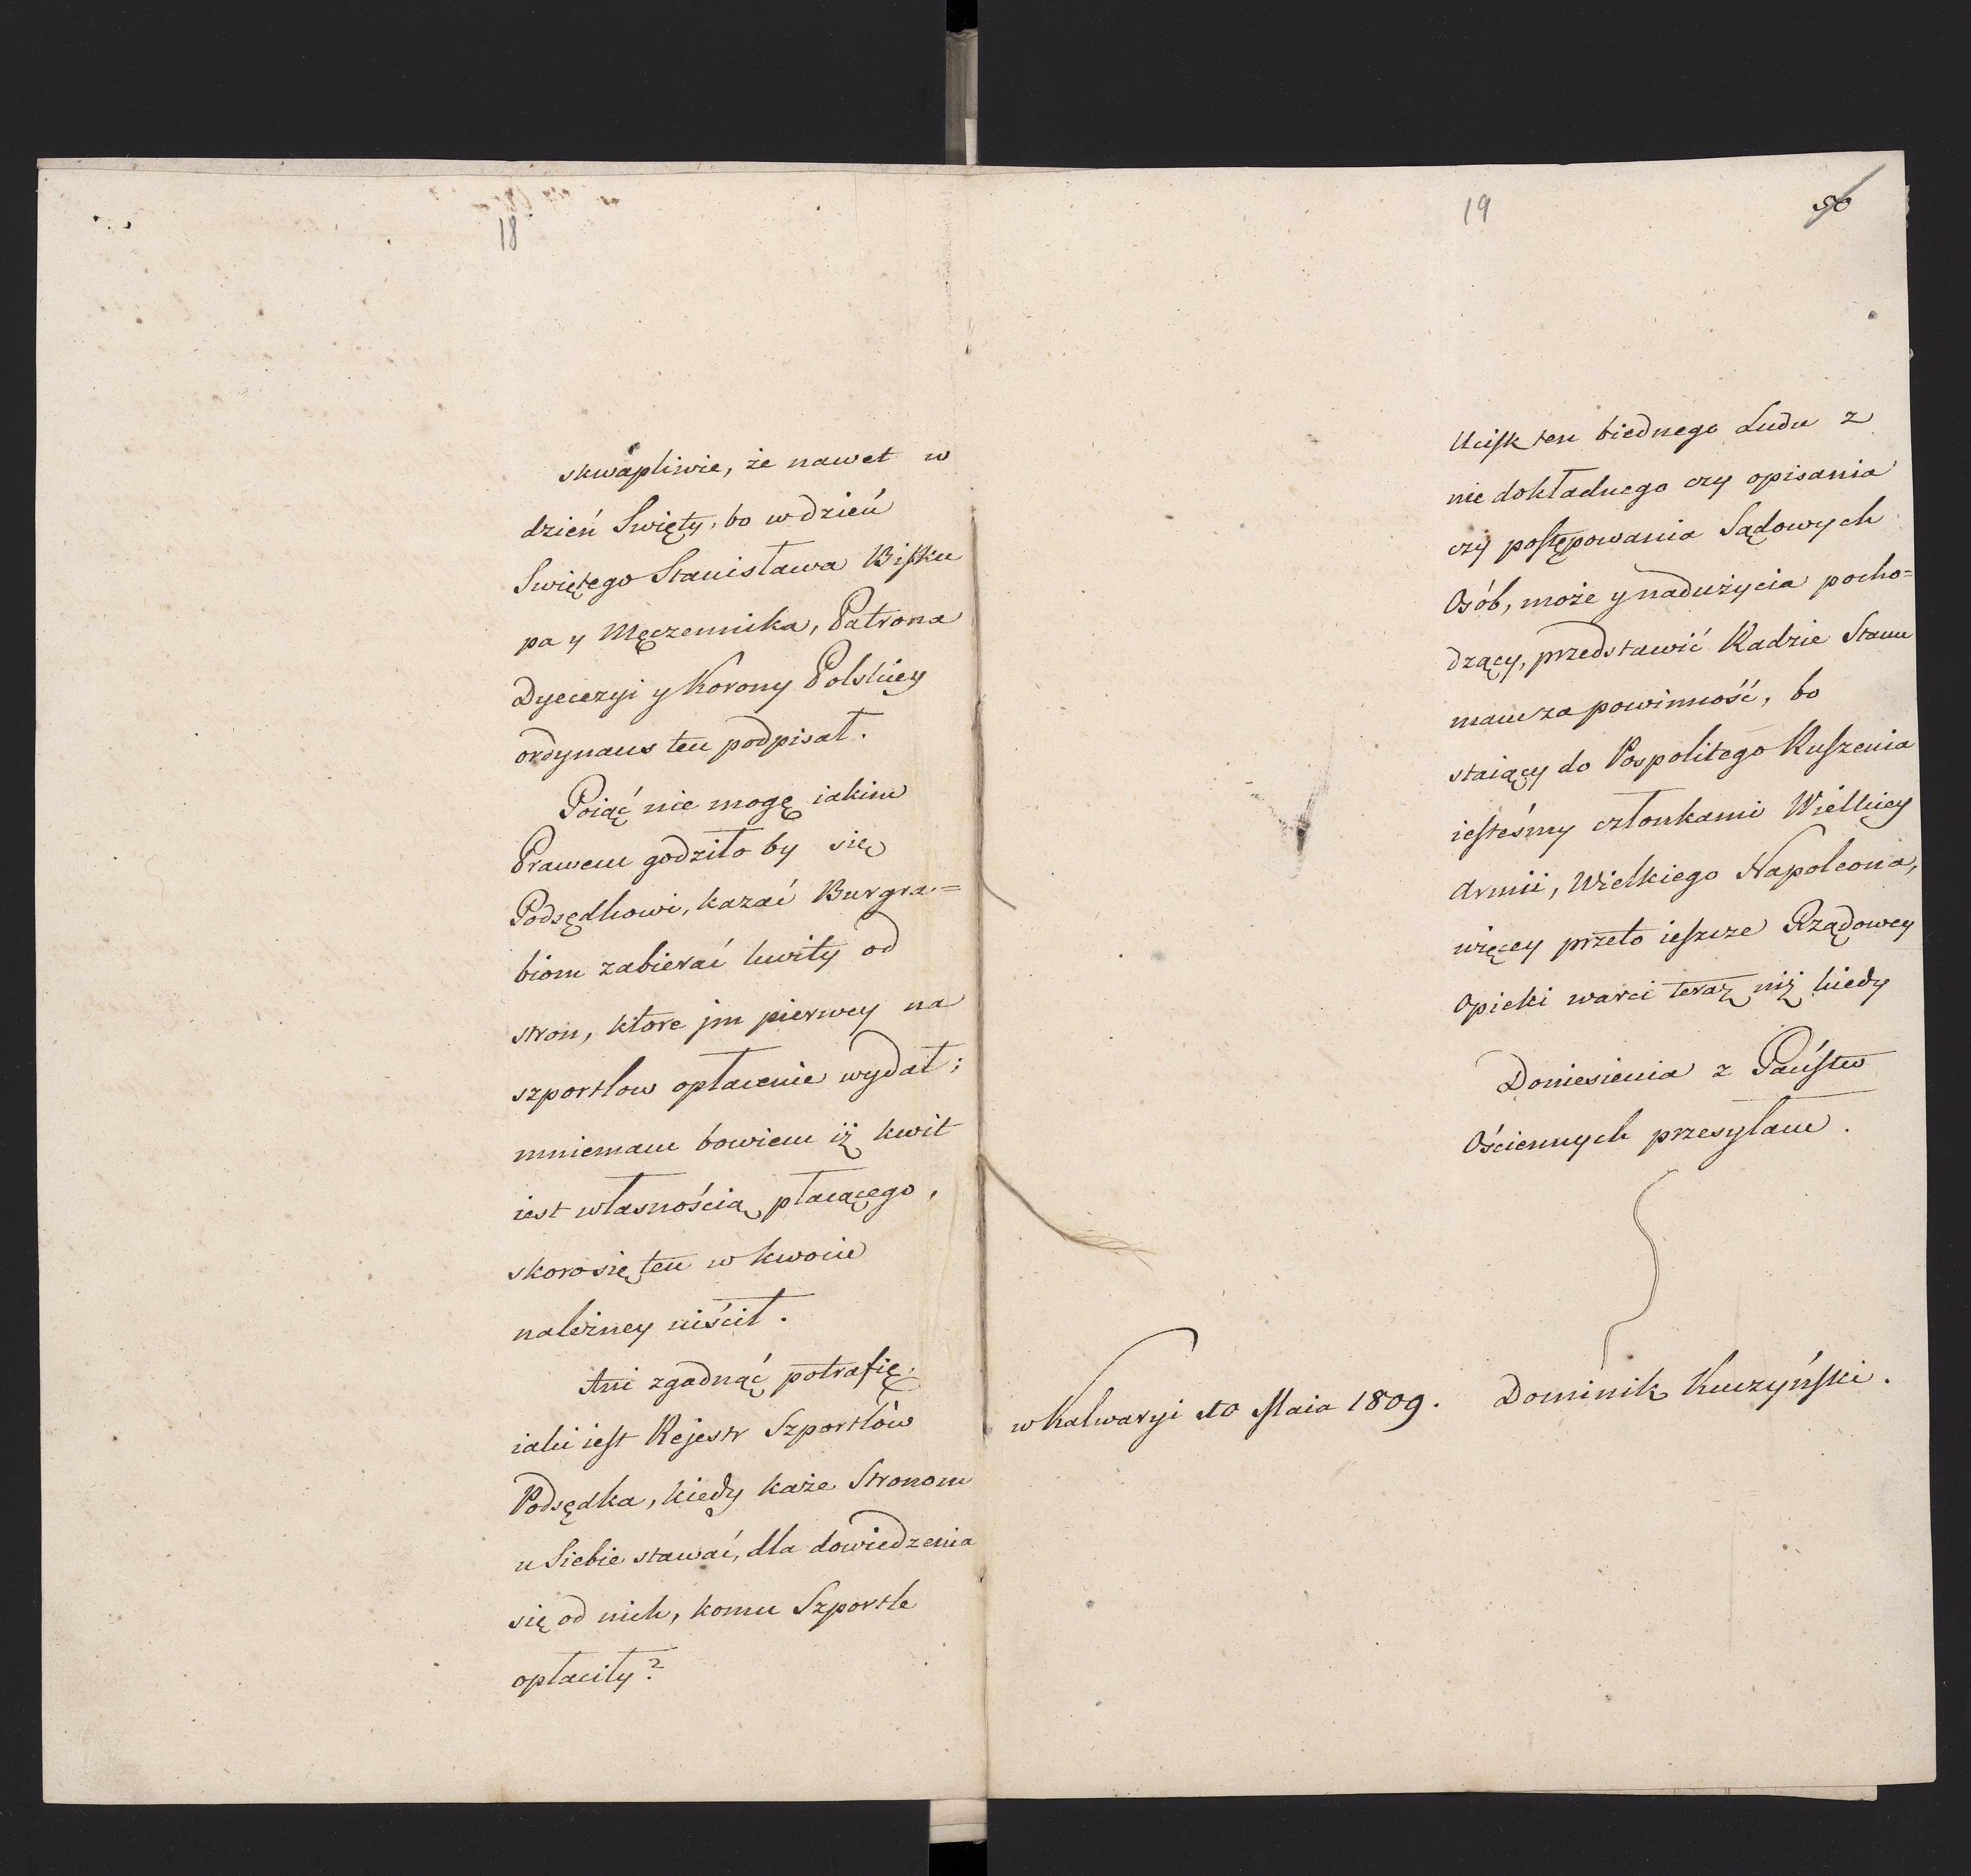 18
skwapliwie, że nawet w
dzień Swięty, bo w dzień
Swiętego Stanisława Bisku
pa y Męczennika, Patrona
Dyecezyi y Korony Polskiey
ordynans ten podpisał.
Poiąć nie mogę iakim
Prawem godziło by się
Podsędkowi, kazać Burgra=
biom zabierać kwity od
stron, ktore jm pierwey na
szportlow opłacenie wydał;
mniemam bowiem iż kwit
iest własnością płacącego,
skoro się ten w kwocie
należney uiścił.
Ani zgadnąć potrafię
iaki iest Rejestr Szportlów
Podsędka, kiedy każe Stronom
u Siebie stawać, dla dowiedzenia
się od nich, komu Szportle
opłaciły?
19
50
Ucisk ten biednego Ludu z
nie dokładnego czy opisania
czy postępowania Sądowych
Osób, może y nadużycia pocho=
dzący, przedstawić Radzie Stanu
mam za powinność, bo
staiący do Pospolitego Ruszenia
iesteśmy członkami Wielkiey
Armii, Wielkiego Napoleona,
więcey przeto ieszcze Rządowey
Opieki warci teraz niż kiedy
Doniesienia z Państw
Ościennych przesyłam.
w Kalwaryi 10 Maia 1809. Dominik Kuczyński.